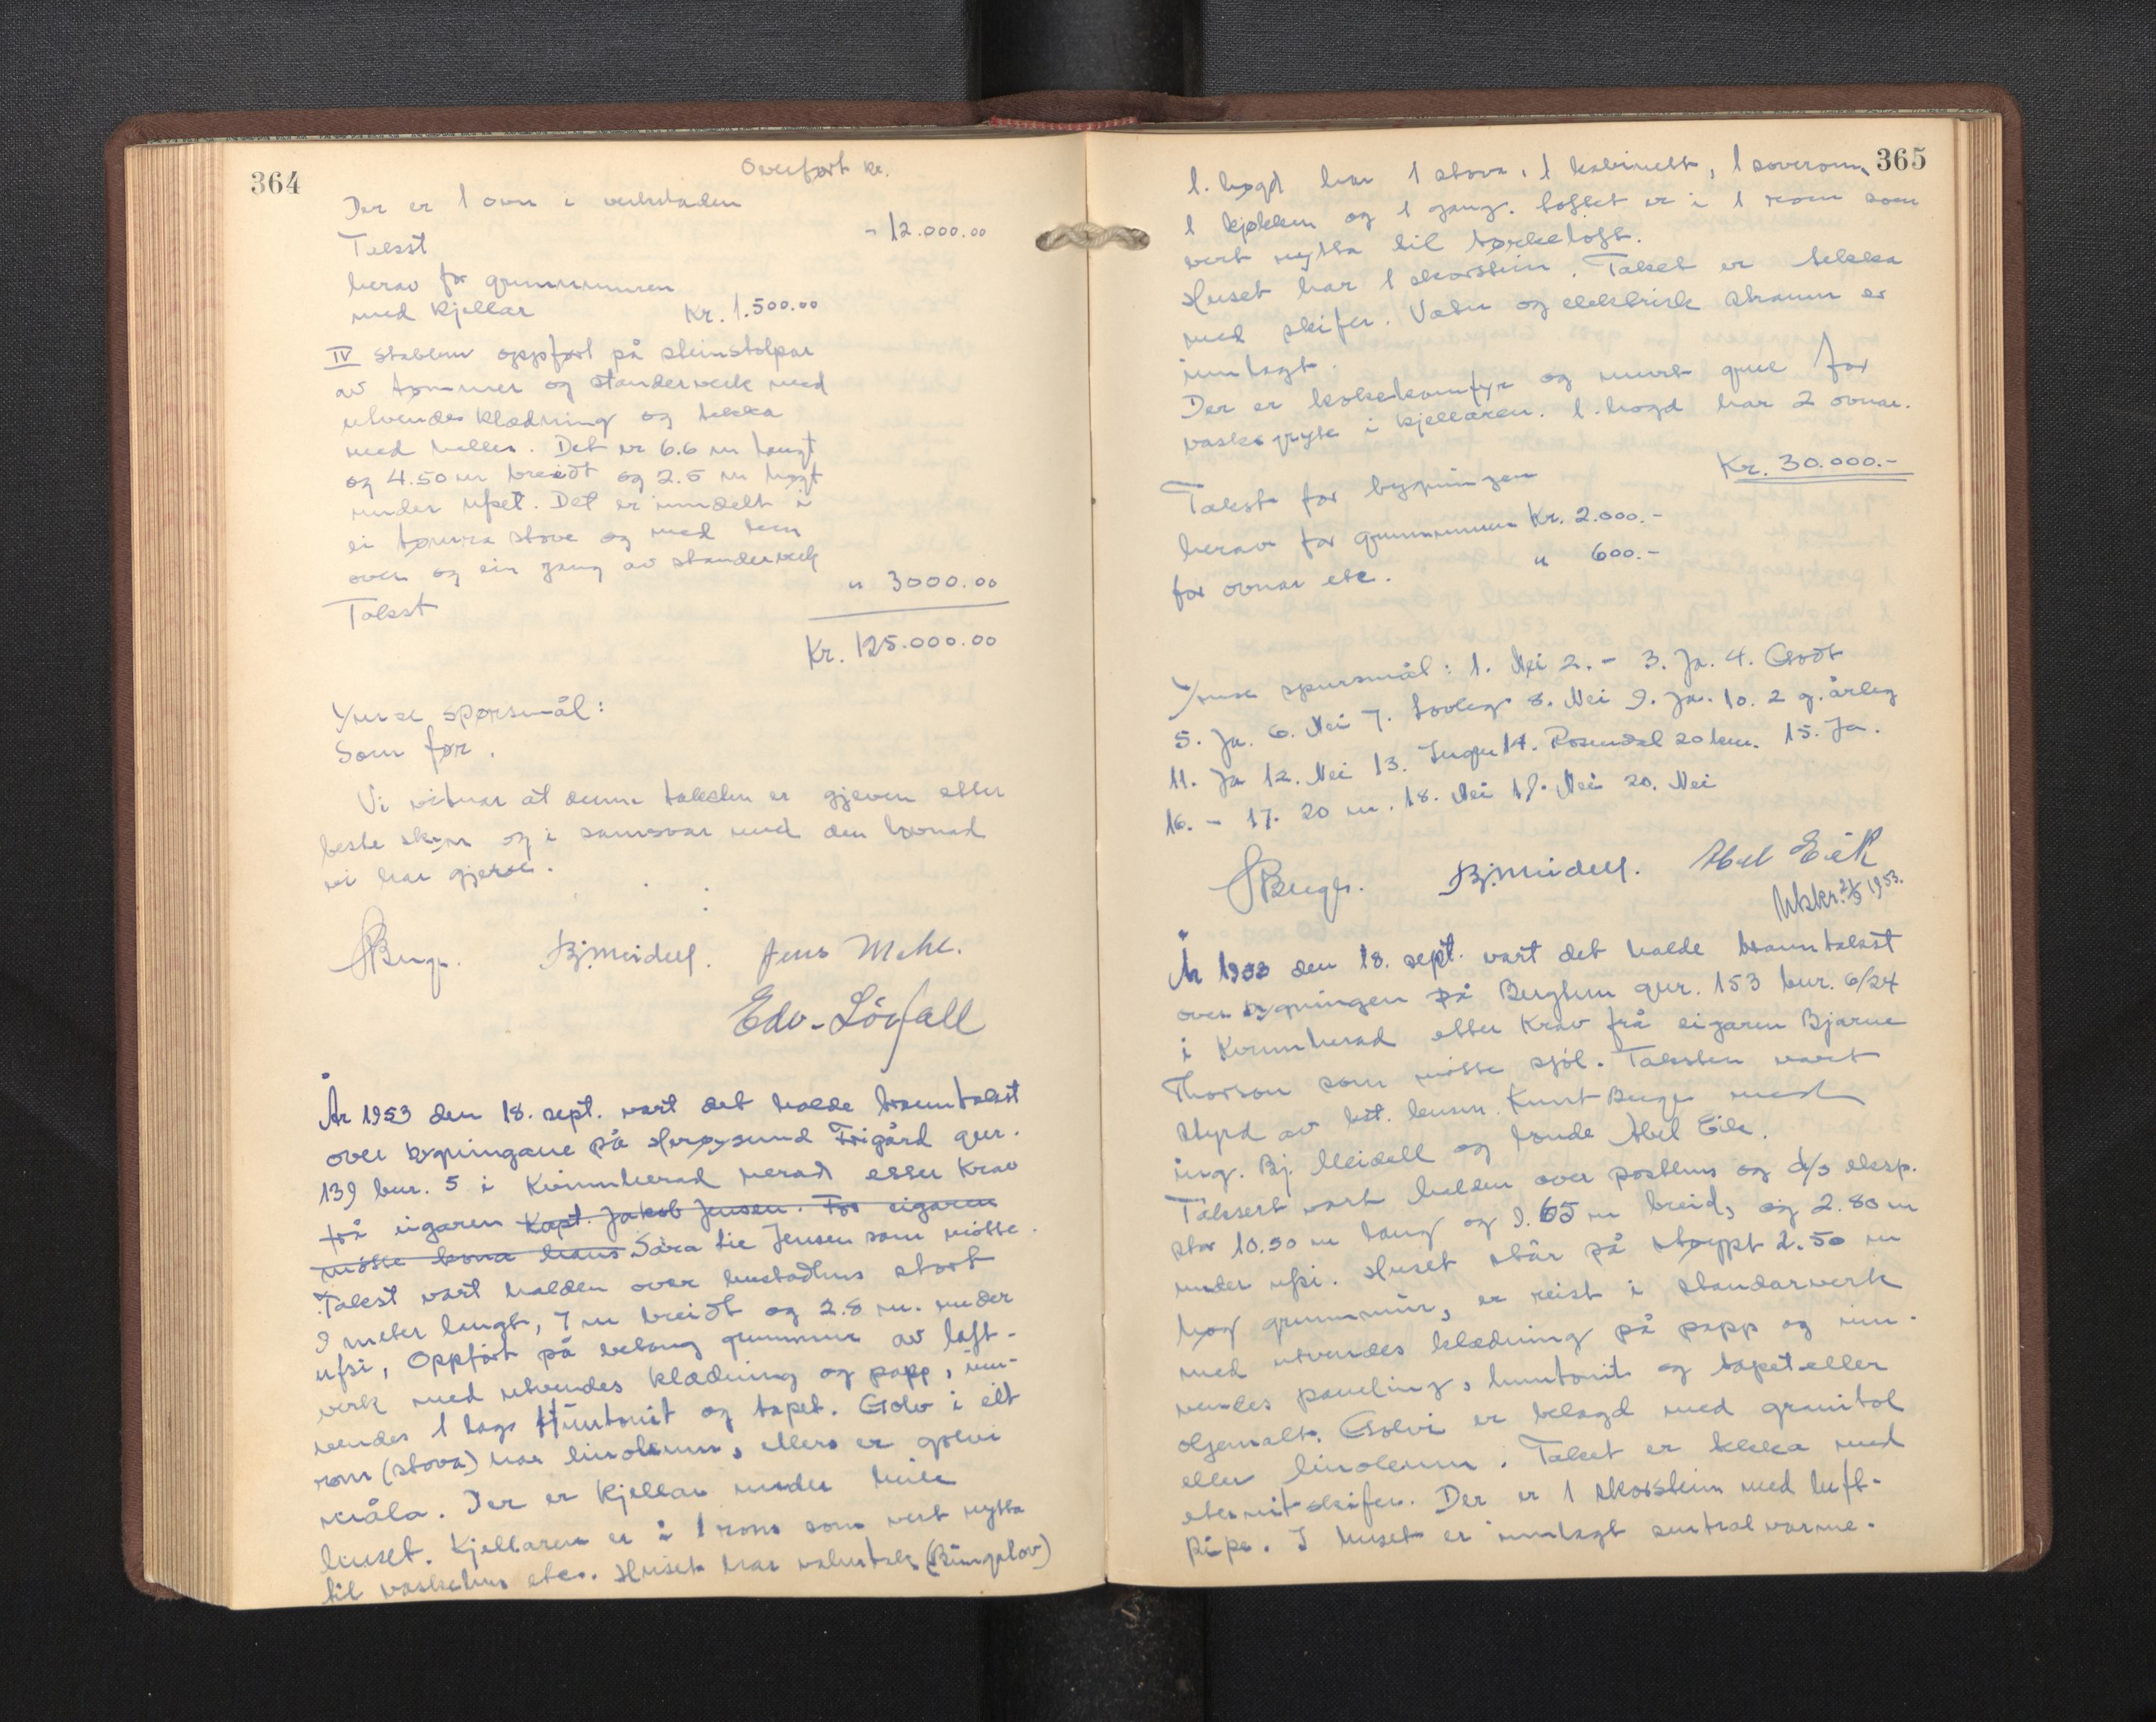 364
Overført kr.
Der er 1 ovn i verkstaden
Takst
- 12.000.00
herav for grunnmuren
med kjellar Kr. 1.500.00
IV Stablen oppført på steinstolpar
av tømmer og standerverk med
utvendes klædning og tekka
med heller. Det er 6.6 m langt
og 4.50 m breidt og 2.5 m høgt
under ufset. Det er inndelt i
ei tømra stove og med lem
over og ein gang av standerverk
Takst
" 3000.00
Kr. 125.000.00
Ymse spørsmål:
Som før.
Vi vitnar at denne taksten er gjeven etter
beste skjøn og i samsvar med den lovnad
vi har gjeve.
Bj. Meidell. Jens Mehl.
Edv. Lörfall
År 1953 den 18. sept. vart det halde branntakst
over bygningane på Herøysund Frigård gnr.
139 bnr. 5 i Kvinnherad herad etter krav
frå eigaren Kapt. Jakob Jensen. For eigaren
møtte kona hans Sara Lie Jensen som møtte.
Takst vart halden over bustadhus stort
9 meter langt, 7 m breidt og 2.8 m. under
ufsi, Oppført på betong grunnmur av laft-
verk med utvendes klædning og papp, inn-
vendes 1 lags Huntonit og tapet. Golv i eit
rom (stova) har linoleum, ellers er golvi
måla. Der er kjellar under heile
huset. Kjellaren er i 1 rom som vert nytta
til vaskehus etc. Huset har valmtak (Bungalov)
365
1. høgd har 1 stova, 1 kabinett, 1 soverom,
1 kjøkken og 1 gang. Loftet er i 1 rom som
vert nytta til tørkeloft.
Huset har 1 skorstein. Taket er tekka
med skifer. Vatn og elektrisk straum er
innlagt.
Der er kokekomfyr og murt grue for
vaskegryte i kjellaren. 1. høgd har 2 ovnar.
Takst for bygningen Kr. 30.000.-
herav for grunnmuren Kr. 2.000.-
for ovnar etc. " 600.-
Ymse spursmål: 1. Nei 2. - 3. Ja. 4. Godt
5. Ja. 6. Nei 7. Lovleg 8. Nei 9. Ja. 10. 2 g. årleg
11. Ja 12. Nei 13. Ingen 14. Rosendal 20 km. 15. Ja.
16. - 17. 20 m. 18. Nei 19. Nei 20. Nei
Bj. Meidell. Abel Eik
Utskr. 1953.
År 1953 den 18. sept. vart det halde branntakst
over bygningen på Bergheim gnr. 153 bnr. 6/24
i Kvinnherad etter krav frå eigaren Bjarne
Thorson som møtte sjøl. Taksten vart
styrd av kst. lensm. Knut Berge med
ing. Bj. Meidell og bonde Abel Eik.
Taksert vart halden over posthus og d/s eksp.
stor 10.50 m lang og 9.65 m breid, og 2.80 m
under ufsi. Huset står på støypt 2.50 m
høg grunnmur, er reist i standarverk
med utvendes klædning på papp og inn-
vendes paneling, huntonit og tapet eller
oljemalt. Golvi er belagd med granitol
eller linoleum. Taket er tekka med
eternitskifer. Der er 1 skorstein med luft-
pipe. I huset er innlagt sentralvarme.